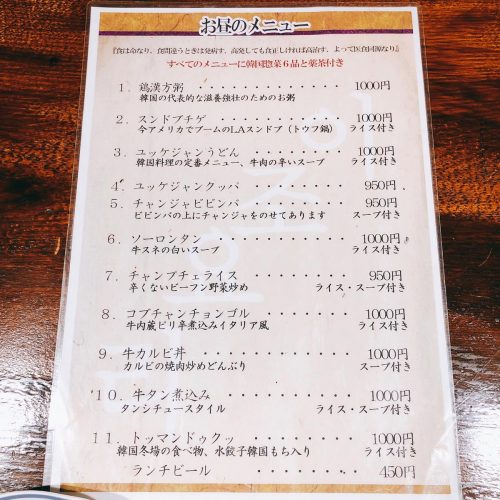 お昼のメニュー
『食は命なり、食間違うときは発病す、高発しても食正しければ高治す、よって医食同源なり』
すべてのメニューに韓国惣菜6品と薬茶付き
1. 鶏漢方粥 ・・・・・・・・・・・・ 1000円
韓国の代表的な滋養強壮のためのお粥
2. スンドブチゲ ・・・・・・・・・・ 1000円
今アメリカでブームのLAスンドブ(トウフ鍋) ライス付き
3. ユッケジャンうどん ・・・・・・・ 1000円
韓国料理の定番メニュー、牛肉の辛いスープ ライス付き
4. ユッケジャンクッパ ・・・・・・・ 950円
5. チャンジャビビンバ ・・・・・・・ 950円
ビビンバの上にチャンジャをのせてあります スープ付き
6. ソーロンタン ・・・・・・・・・・ 1000円
牛スネの白いスープ ライス付き
7. チャンプチェライス ・・・・・・・ 950円
辛くないビーフン野菜炒め ライス・スープ付き
8. コブチャンチョンゴル ・・・・・・ 1000円
牛内蔵ピリ辛煮込みイタリア風 ライス付き
9. 牛カルビ丼 ・・・・・・・・・・・ 1000円
カルビの焼肉炒めどんぶり スープ付き
10. 牛タン煮込み ・・・・・・・・・ 1000円
タンシチュースタイル ライス・スープ付き
11. トッマンドゥクッ ・・・・・・・ 1000円
韓国冬場の食べ物、水餃子韓国もち入り ライス付き
ランチビール ・・・・・・・・・ 450円